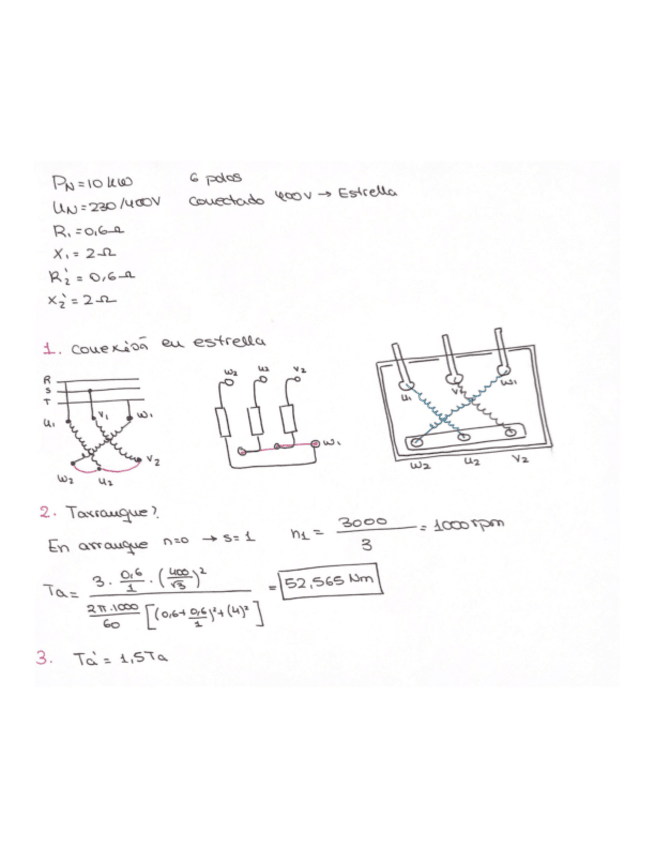 PN = 10 kW 6 polos
UN = 230/400V Conectado 400V → Estrella
R1 = 0,6Ω
X1 = 2Ω
R2' = 0,6Ω
X2' = 2Ω
1. Conexión en estrella
R
S
T
U1 V1 W1
W2 U2 V2
W2 U2 V2
W1
U1 V1 W1
W2 U2 V2
2. Tarranque?
En arranque n=0 → s=1 n1 = 3000/3 = 1000 rpm
Ta = 3 · 0,6/1 · (400/√3)² / 2π·1000/60 [(0,6+0,6/1)²+(4)²] = 52,565 Nm
3. Ta' = 1,5Ta